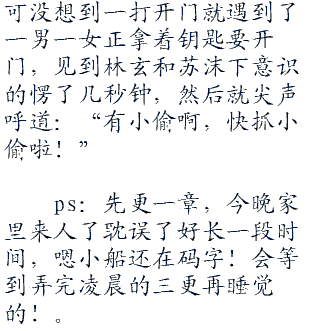 可没想到一打开门就遇到了
一男一女正拿着钥匙要开
门，见到林玄和苏沫下意识
的愣了几秒钟，然后就尖声
呼道：“有小偷啊，快抓小
偷啦！”
ps：先更一章，今晚家
里来人了耽误了好长一段时
间，嗯小船还在码字！会等
到弄完凌晨的三更再睡觉
的！。